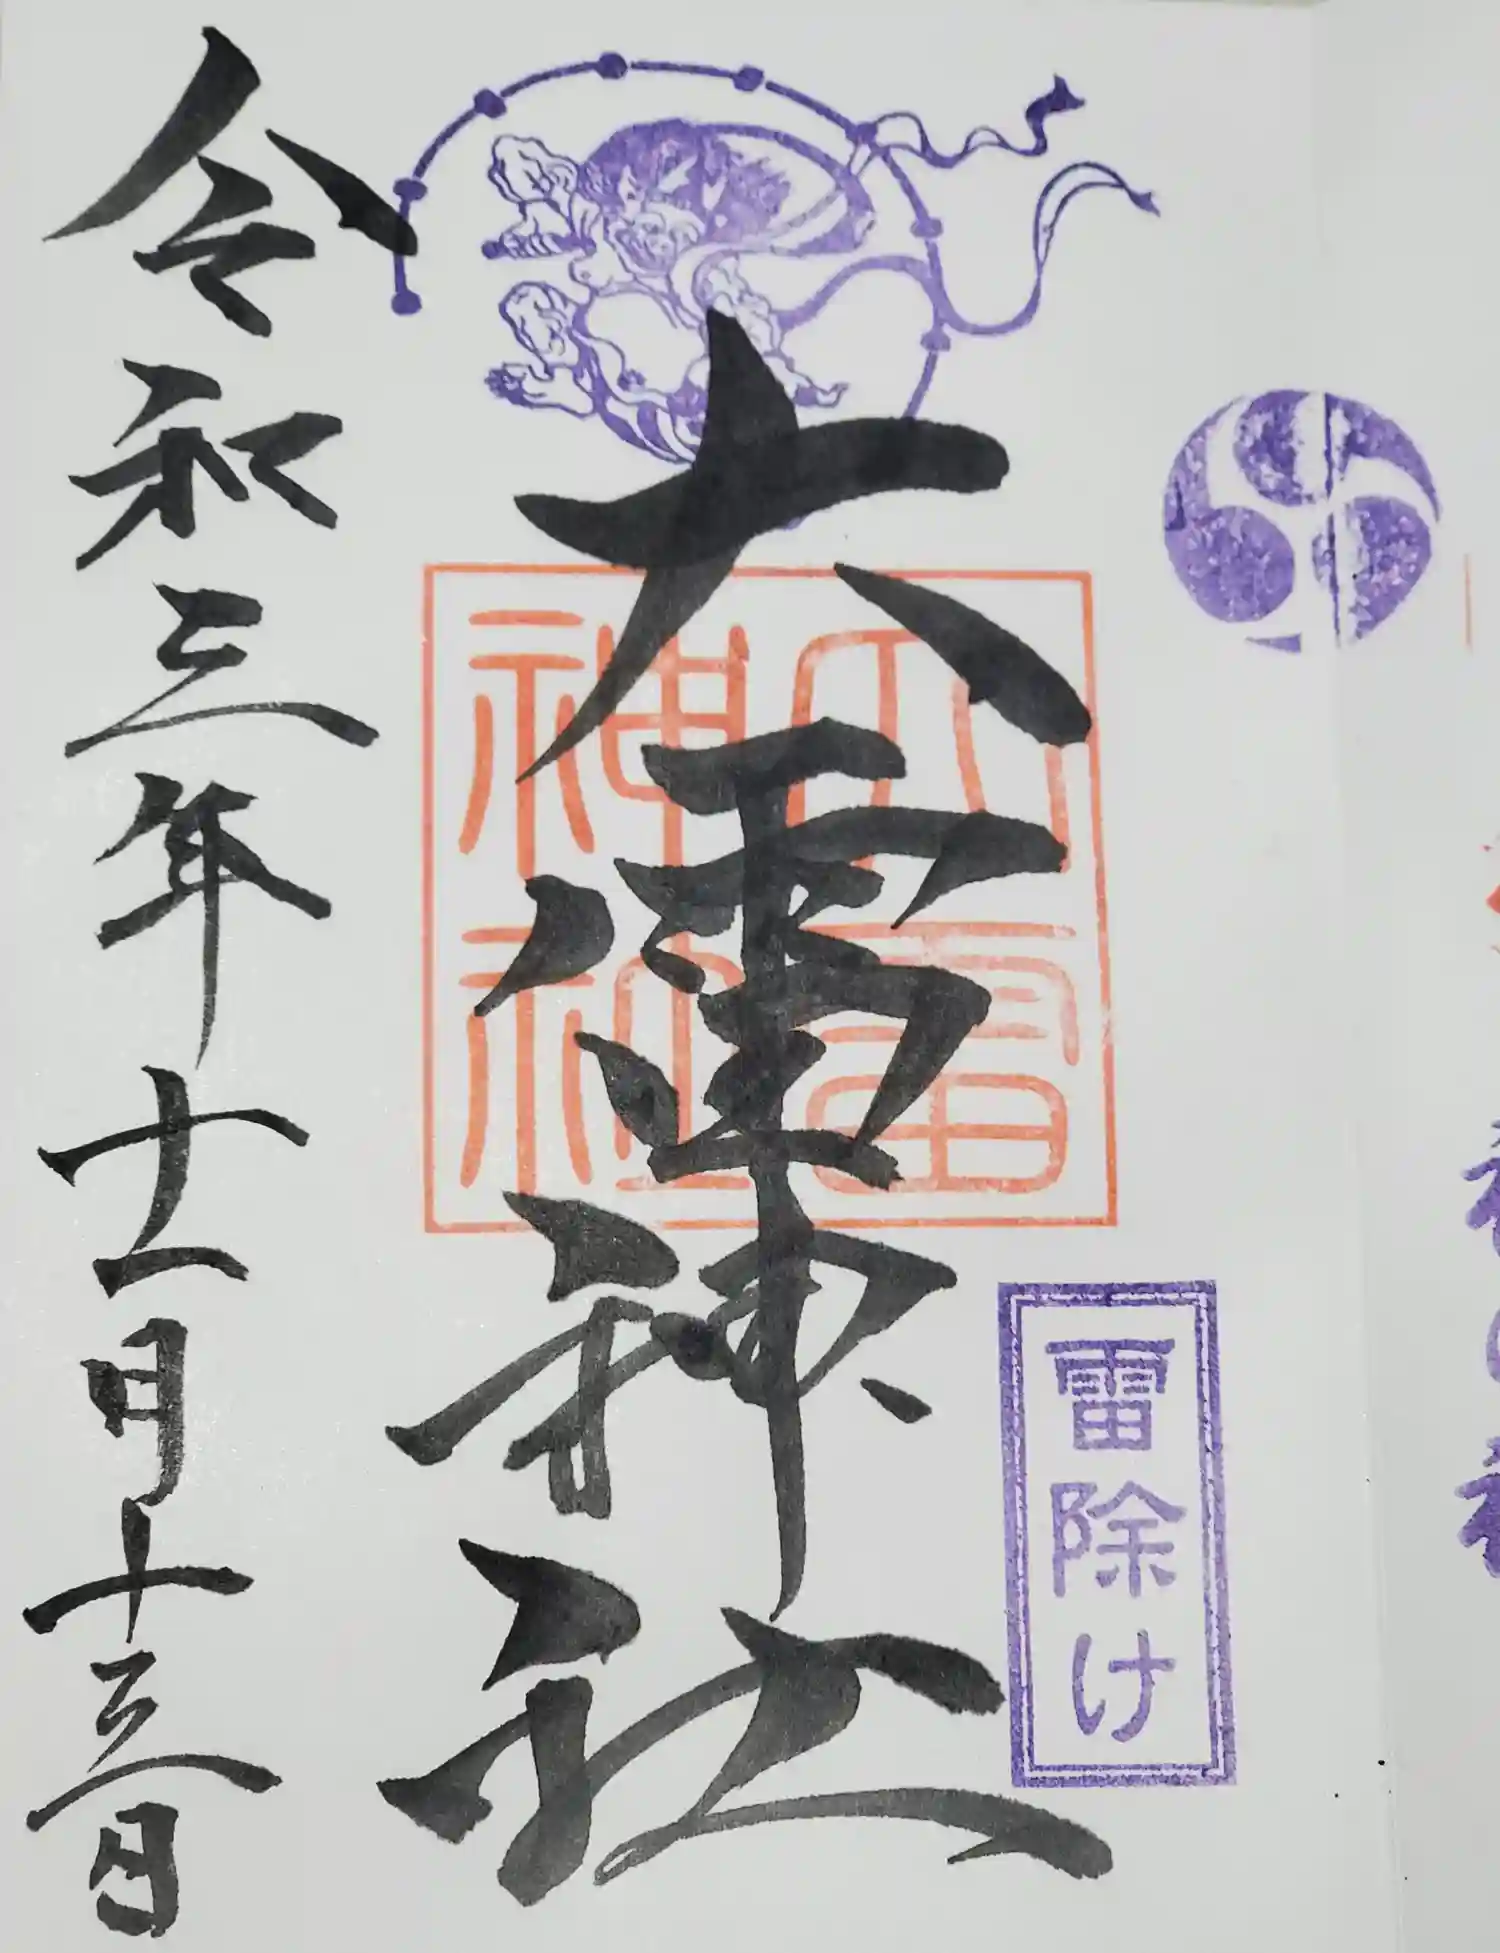 雷除け
大雷神社
大雷
神社
令和三年十一月十三日